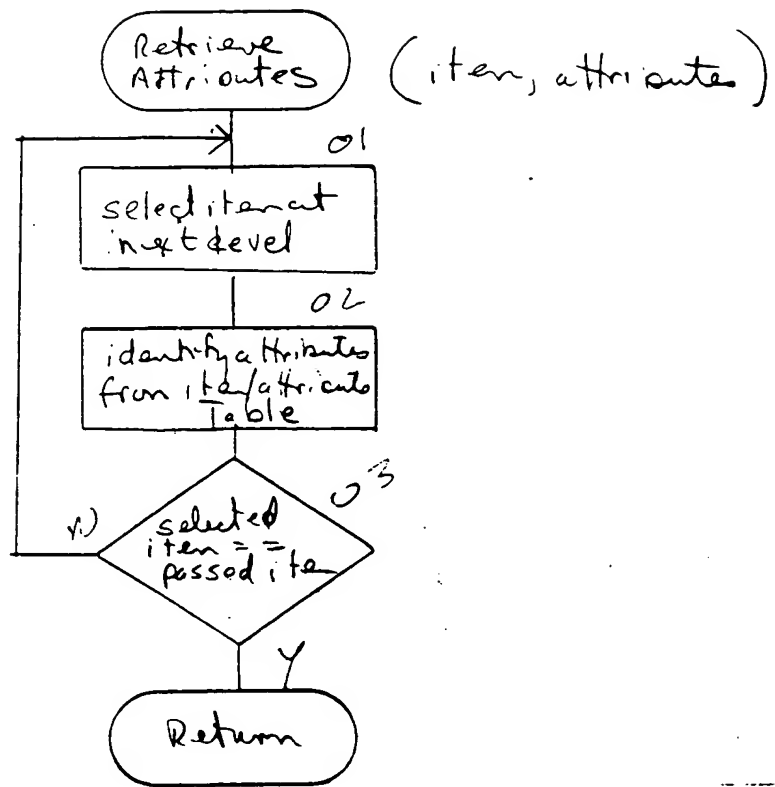 Retrieve
Attributes
(item, attributes)
01
select item at
next level
02
identify attributes
from item/attribute
Table
03
selected
item = =
passed item
N
Y
Return